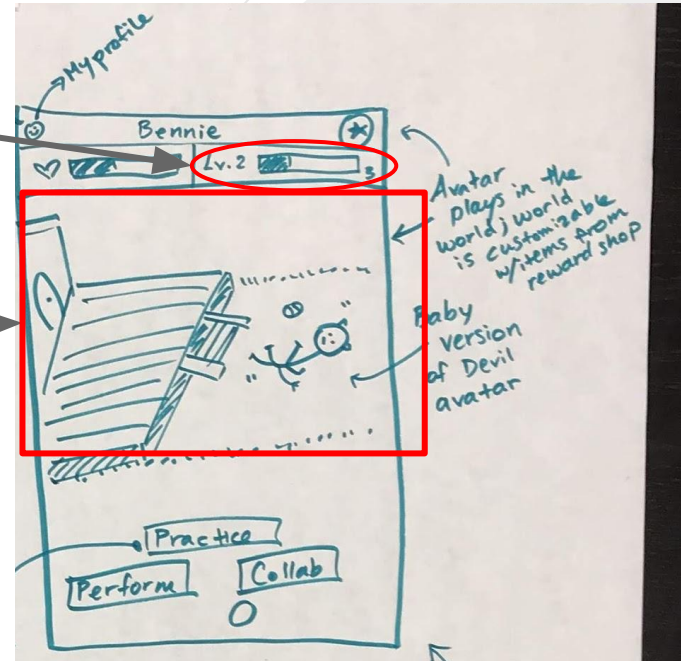 My profile
Bennie
Lv. 2
3
Avatar
plays in the
world; world
is customizable
w/items from
reward shop
Baby
version
of Devil
avatar
Practice
Perform
Collab